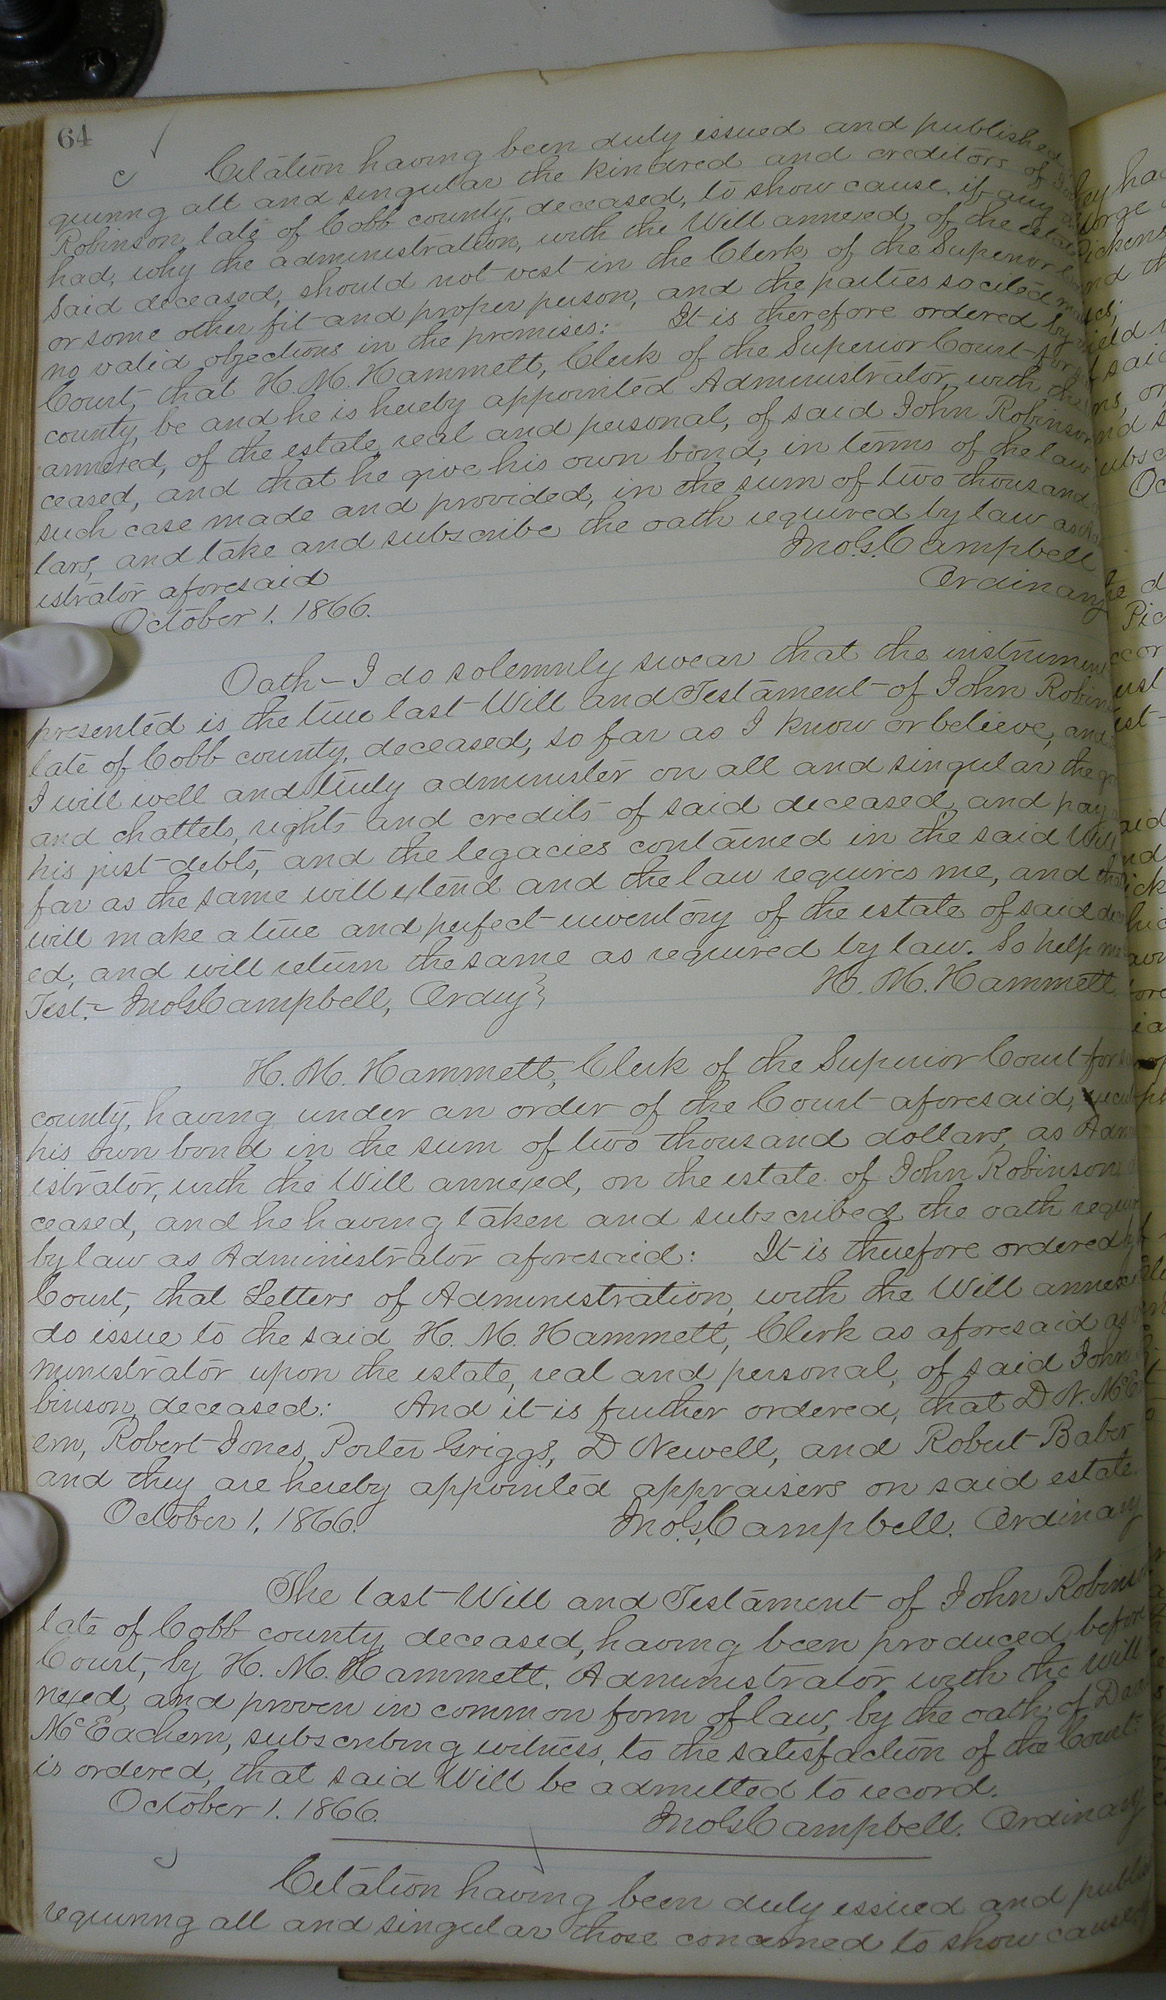 64
Citation having been duly issued and published
quiring all and singular the kindred and creditors of
Robinson, late of Cobb county, deceased, to show cause, if any
had, why the administration, with the Will annexed, of the estate
said deceased, should not vest in the Clerk, of the Superior
or some other fit and proper person, and the parties so cited
no valid objections in the premises: It is therefore ordered by
Court, that H. M. Hammett, Clerk of the Superior Court for
county, be and he is hereby appointed Administrator, with the
annexed, of the estate, real and personal, of said John Robinson
ceased, and that he give his own bond, in terms of the law
such case made and provided, in the sum of two thousand
lars, and take and subscribe the oath required by law as
istrator aforesaid
Jno. G. Campbell
October 1, 1866.
Ordinary
Oath - I do solemnly swear that the instrument
presented is the true last Will and Testament of John Robin
late of Cobb county, deceased, so far as I know or believe, and
I will well and truly administer on all and singular the
and chattels, rights and credits of said deceased, and pay
his just debts, and the legacies contained in the said Will
far as the same will extend and the law requires me, and that
will make a true and perfect inventory of the estate of said
ed, and will return the same as required by law. So help me
Test. - Jno G Campbell, Ordny
H. M. Hammett
H. M. Hammett, Clerk of the Superior Court for
county, having under an order of the Court aforesaid,
his own bond in the sum of two thousand dollars, as Adm
istrator, with the Will annexed, on the estate of John Robinson
ceased, and he having taken and subscribed the oath requir
by law as Administrator aforesaid: It is therefore ordered
Court, that Letters of Administration, with the Will annexed
do issue to the said H. M. Hammett, Clerk as aforesaid as
ministrator upon the estate, real and personal, of said John
binson, deceased: And it is further ordered, that D N. McE
ern, Robert Jones, Porter Griggs, D Newell, and Robert Baber
and they are hereby appointed appraisers on said estate.
October 1, 1866.
Jno. G. Campbell. Ordinary
The last Will and Testament of John Robins
late of Cobb county, deceased, having been produced before
Court, by H. M. Hammett, Administrator with the will
nexed, and proven in common form of law, by the oath of
McEachern, subscribing witness, to the satisfaction of the Court
is ordered, that said Will be admitted to record.
October 1. 1866.
Jno G Campbell. Ordinary
Citation having been duly issued and publis
requiring all and singular those concerned to show cause,